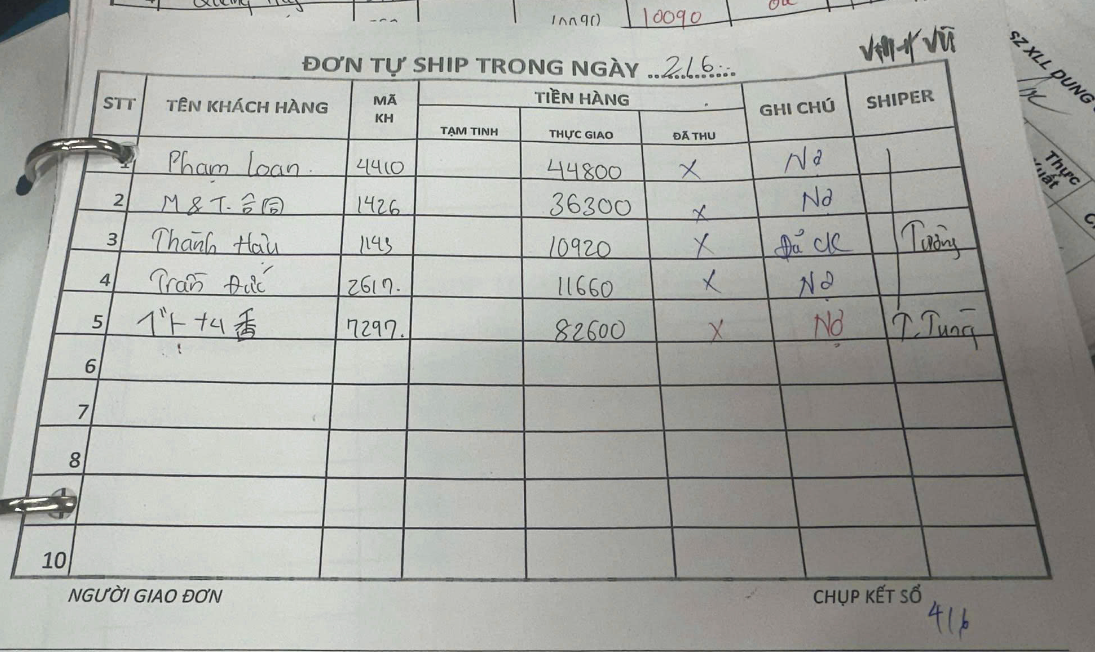 10090
ĐƠN TỰ SHIP TRONG NGÀY ..2/6....
SZ XLL DUNG
Vũ
STT TÊN KHÁCH HÀNG MÃ KH TIỀN HÀNG GHI CHÚ SHIPER
TẠM TINH THỰC GIAO ĐÃ THU
Thực
1 Phạm Loan. 4410 44800 X Nợ
2 M & T. 合同 1426 36300 X Nợ
3 Thành Hậu 1143 10920 X Đã CK Tường
4 Trần Đức 2617. 11660 X Nợ
5 ベトナム 7297. 82600 X Nợ T. Tùng
6
7
8
10
NGƯỜI GIAO ĐƠN CHỤP KẾT SỔ
4/6